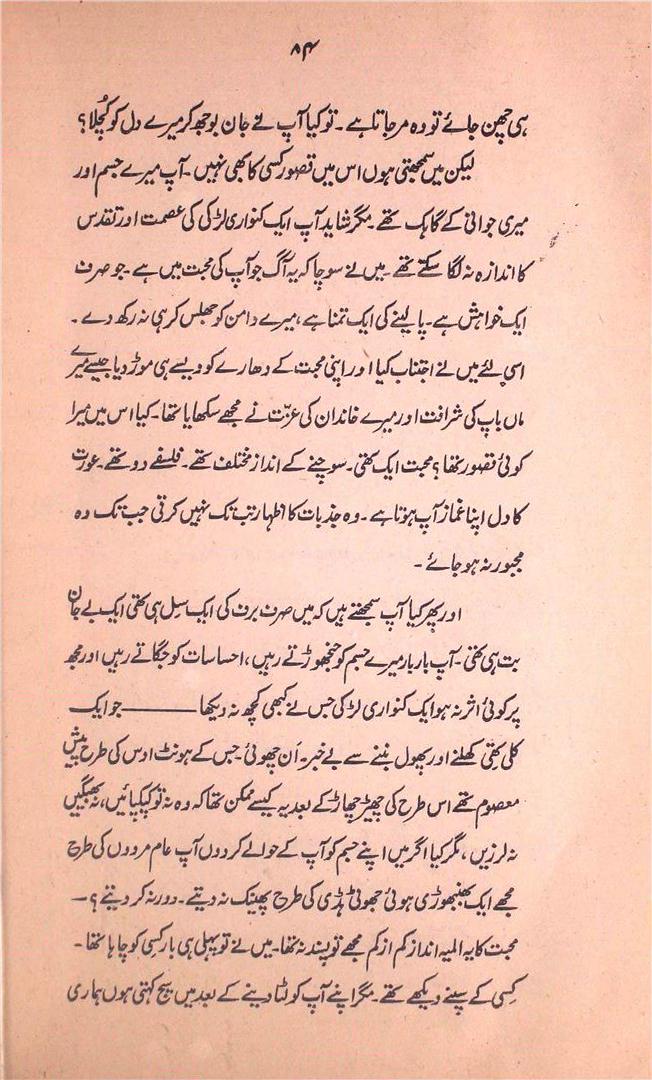 ۸۴
ہی چھن جائے تو وہ مر جاتا ہے ۔ تو کیا آپ نے جان بوجھ کر میرے دل کو کُچلا ؟
لیکن میں سمجھتی ہوں اس میں قصور کسی کا بھی نہیں ۔ آپ میرے جسم اور
میری جوانی کے گاہک تھے ۔ مگر شاید آپ ایک کنواری لڑکی کی عصمت اور تقدس
کا اندازہ نہ لگا سکتے تھے ۔ میں نے سوچا کہ یہ آگ جو آپ کی محبت میں ہے ۔ جو صرف
ایک خواہش ہے ۔ پا لینے کی ایک تمنا ہے ، میرے دامن کو جھلس کر ہی نہ رکھ دے ۔
اسی لئے میں نے اجتناب کیا اور اپنی محبت کے دھارے کو ویسے ہی موڑ دیا جیسے میرے
ماں باپ کی شرافت اور میرے خاندان کی عزّت نے مجھے سکھایا تھا ۔ کیا اس میں میرا
کوئی قصور تھا ؟ محبت ایک تھی ۔ سوچنے کے انداز مختلف تھے ۔ فلسفے دو تھے ۔ عورت
کا دل اپنا غماز آپ ہوتا ہے ۔ وہ جذبات کا اظہار تب تک نہیں کرتی جب تک وہ
مجبور نہ ہو جائے ۔
اور پھر کیا آپ سمجھتے ہیں کہ میں صرف برف کی ایک سِل ہی تھی ایک بے جان
بت ہی تھی ۔ آپ بار بار میرے جسم کو جھنجھوڑتے رہیں ، احساسات کو جگاتے رہیں اور مجھ
پر کوئی اثر نہ ہو ایک کنواری لڑکی جس نے کبھی کچھ نہ دیکھا ——— جو ایک
کلی تھی کھلنے اور پھول بننے سے بے خبر ۔ اَن چھوئی ۔ جس کے ہونٹ اوس کی طرح
معصوم تھے اس طرح کی چھیڑ چھاڑ کے بعد یہ کیسے ممکن تھا کہ وہ نہ تو کپکپائیں ، نہ بھیگیں
نہ لرزیں ، مگر کیا اگر میں اپنے جسم کو آپ کے حوالے کر دوں آپ عام مردوں کی طرح
مجھے ایک بھنبھوڑی ہوئی جھوٹی ہڈی کی طرح پھینک نہ دیتے ۔ دور نہ کر دیتے ؟ —
محبت کا یہ المیہ انداز کم از کم مجھے تو پسند نہ تھا ۔ میں نے تو پہلی ہی بار کسی کو چاہا تھا ۔
کسی کے سپنے دیکھے تھے ۔ مگر اپنے آپ کو لٹا دینے کے بعد میں سچ کہتی ہوں ہماری